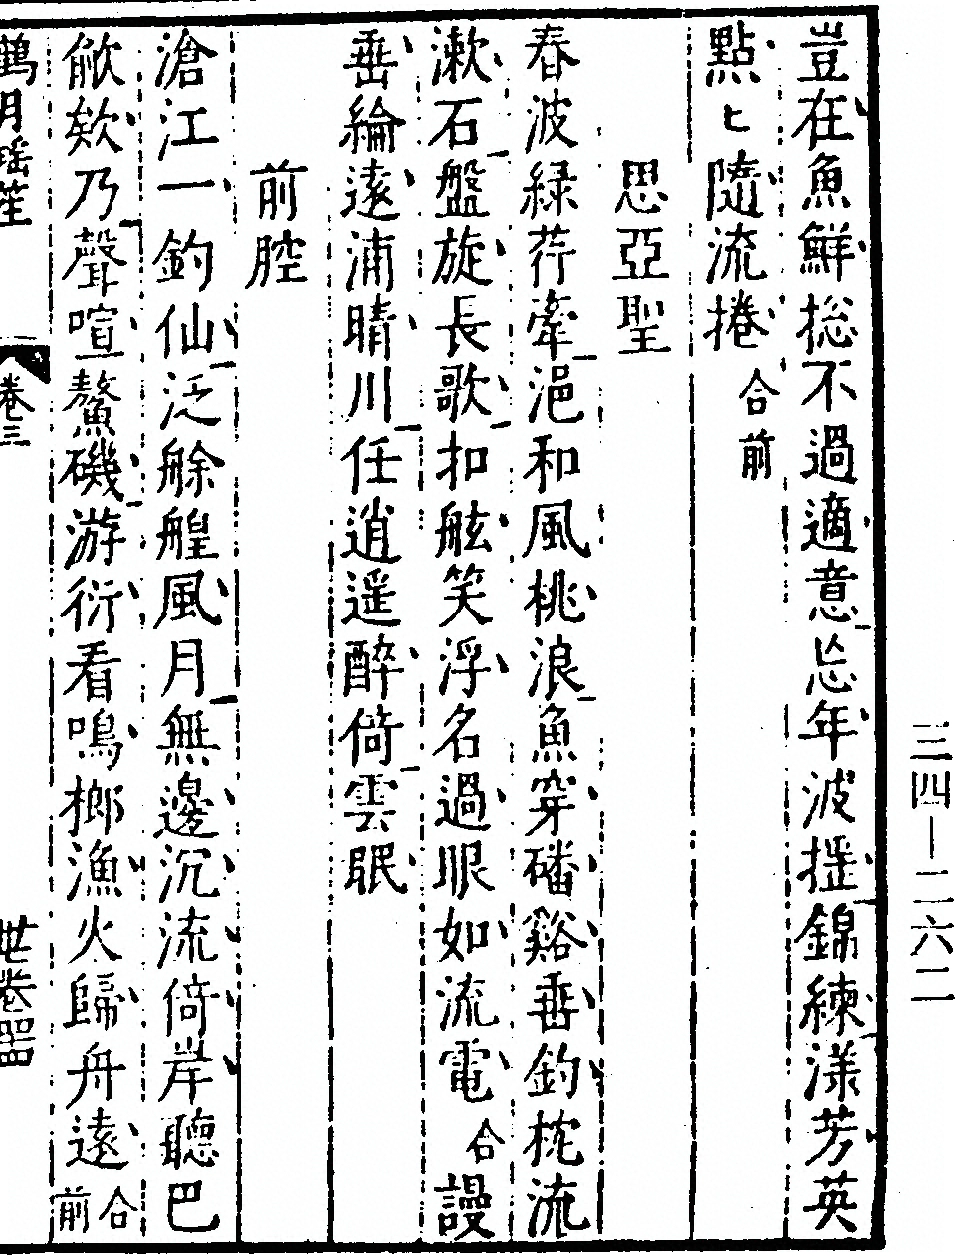 豈在魚鮮捴不過適意忘年波摇錦練漾芳英
點〻隨流捲合前
思亞聖
春波緑荇牽浥和風桃浪魚穿磻谿垂釣枕流
漱石盤旋長歌扣舷笑浮名過眼如流電合謾
垂綸遠浦晴川任逍遥醉倚雲眠
前腔
滄江一釣仙泛艅艎風月無邊沉流倚岸聽巴
歈欸乃聲喧鰲磯游衍看鳴榔漁火歸舟遠合前
鶴月瑶笙
卷三
三四—二六二